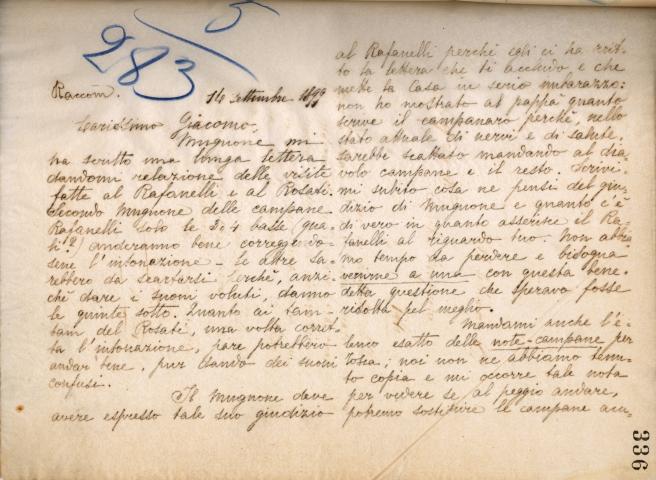 5
283
Raccom.
14 settembre 1899
Carissimo Giacomo,
Mugnone mi
ha scritto una lunga lettera
dandomi relazione delle visite
fatte al Rafanelli e al Rosati.
Secondo Mugnone delle campane
Rafanelli solo le 3 o 4 basse (qua-
li?) anderanno bene correggendo-
sene l'intonazione - le altre sa-
rebbero da scartarsi perchè, anzi-
chè dare i suoni voluti, danno
le quinte sotto. Quanto ai tam-
tam del Rosati, una volta corret-
ta l'intonazione, pare potrebbero
andar bene, pur dando dei suoni
confusi.
Il Mugnone deve
avere espresso tale suo giudizio
al Rafanelli perchè egli ci ha scrit-
to la lettera che ti accludo e che
mette la Casa in serio imbarazzo:
non ho mostrato al pappà quanto
scrive il campanaro perchè, nello
stato attuale di nervi e di salute,
sarebbe scattato mandando al dia-
volo campane e il resto. Scrivi-
mi subito cosa ne pensi del giu-
dizio di Mugnone e quanto c'è
di vero in quanto asserisce il Ra-
fanelli al riguardo tuo. Non abbia-
mo tempo da perdere e bisogna
venirne a una con questa bene-
detta questione che speravo fosse
risolta pel meglio.
Mandami anche l'e-
lenco esatto delle note-campane per
Tosca; noi non ne abbiamo tenu-
to copia e mi occorre tale nota
per vedere se, al peggio andare,
potremo sostituire le campane
336